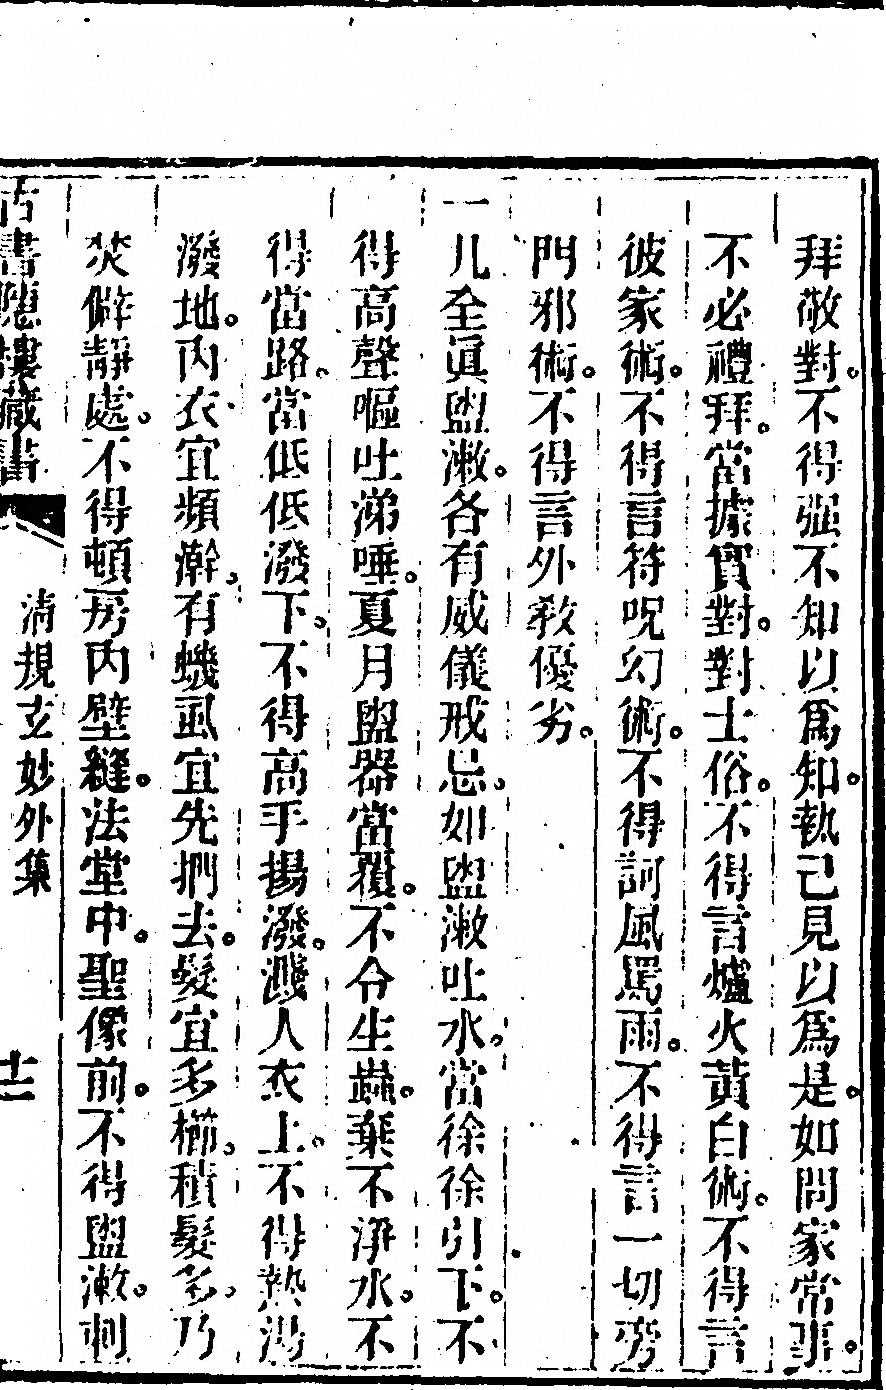 拜敬對。不得强不知以爲知。執己見以爲是。如問家常事。
不必禮拜。當據實對。對士俗。不得言爐火黃白術。不得言
彼家術。不得言符呪幻術。不得訶風罵雨。不得言一切旁
門邪術。不得言外敎優劣。
一凡全眞盥漱。各有威儀戒忌。如盥漱吐水。當徐徐引下。不
得高聲嘔吐涕唾。夏月盥器當覆。不令生蟲。棄不淨水。不
得當路。當低低潑下。不得高手揚潑。濺人衣上。不得熱湯
潑地。內衣宜頻澣。有蟣虱宜先捫去。髮宜多櫛。積髮多。乃
焚僻靜處。不得頓房內壁縫。法堂中。聖像前。不得盥漱。刺
古書隱樓藏書
清規玄妙外集
十二